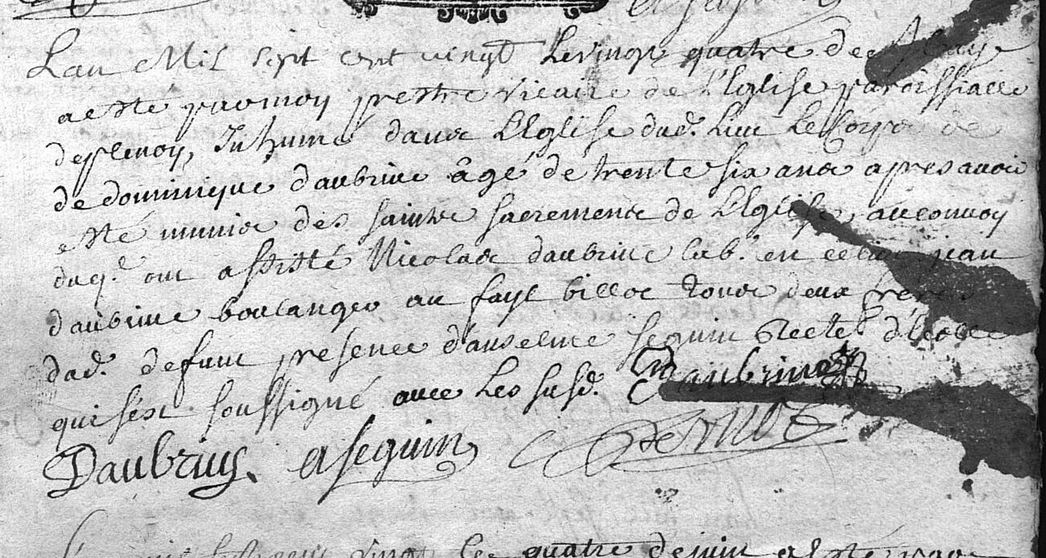 Lan Mil sept cent vingt Le vingt quatre de
a esté par moy prestre vicaire de L'Eglise parroissialle
Inhumé dans L'Eglise dud. Lieu Le Corps de
de dominique daubrive âgé de trente six ans apres avoir
esté munis des saints sacrements de L'Eglise, au convoy
duq.l ont assisté Nicolas daubrive lab. en ce lieu jean
daubrive boulanger au fayl billot tous deux freres
dud. defunt presence d'anselme seguin Recteur d'écolle
qui s'est soussigné avec Les susd. Daubrive
Daubrive aseguin
vingt le quatre de juin a esté par